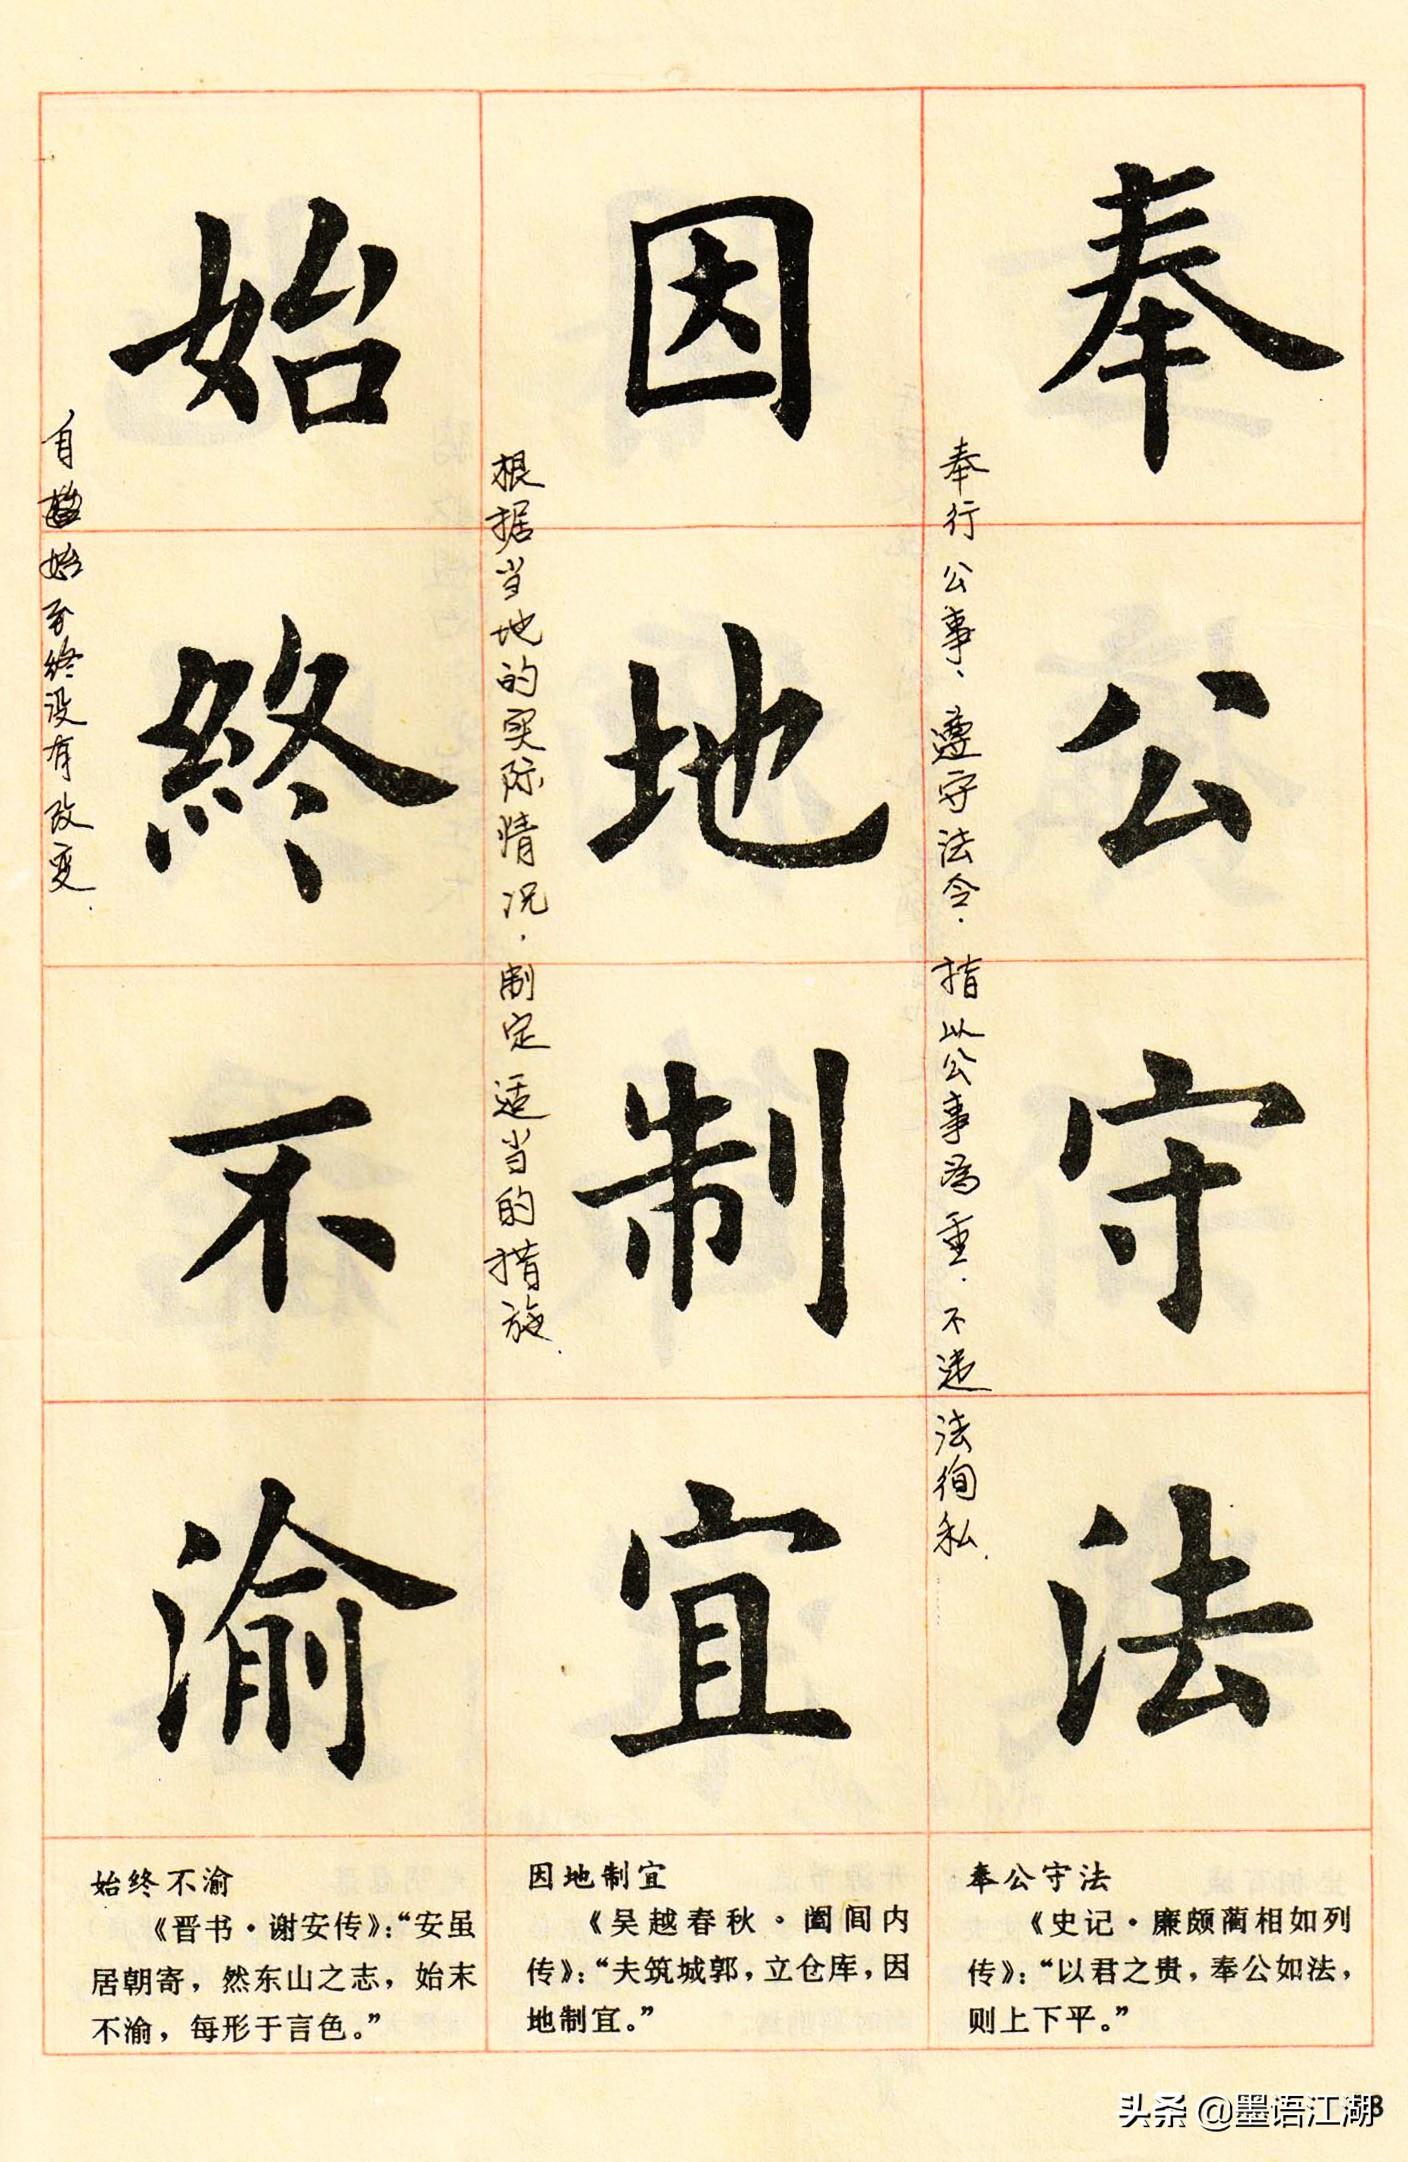 奉公守法
奉行公事、遵守法令.指以公事為重.不违法徇私.
因地制宜
根据当地的实际情况,制定适当的措施.
始終不渝
自始至终没有改变.
奉公守法
《史记·廉颇蔺相如列
传》:“以君之贵,奉公如法,
则上下平。”
因地制宜
《吴越春秋·阖闾内
传》:“夫筑城郭,立仓库,因
地制宜。”
始终不渝
《晋书·谢安传》:“安虽
居朝寄,然东山之志,始末
不渝,每形于言色。”
头条 @墨语江湖